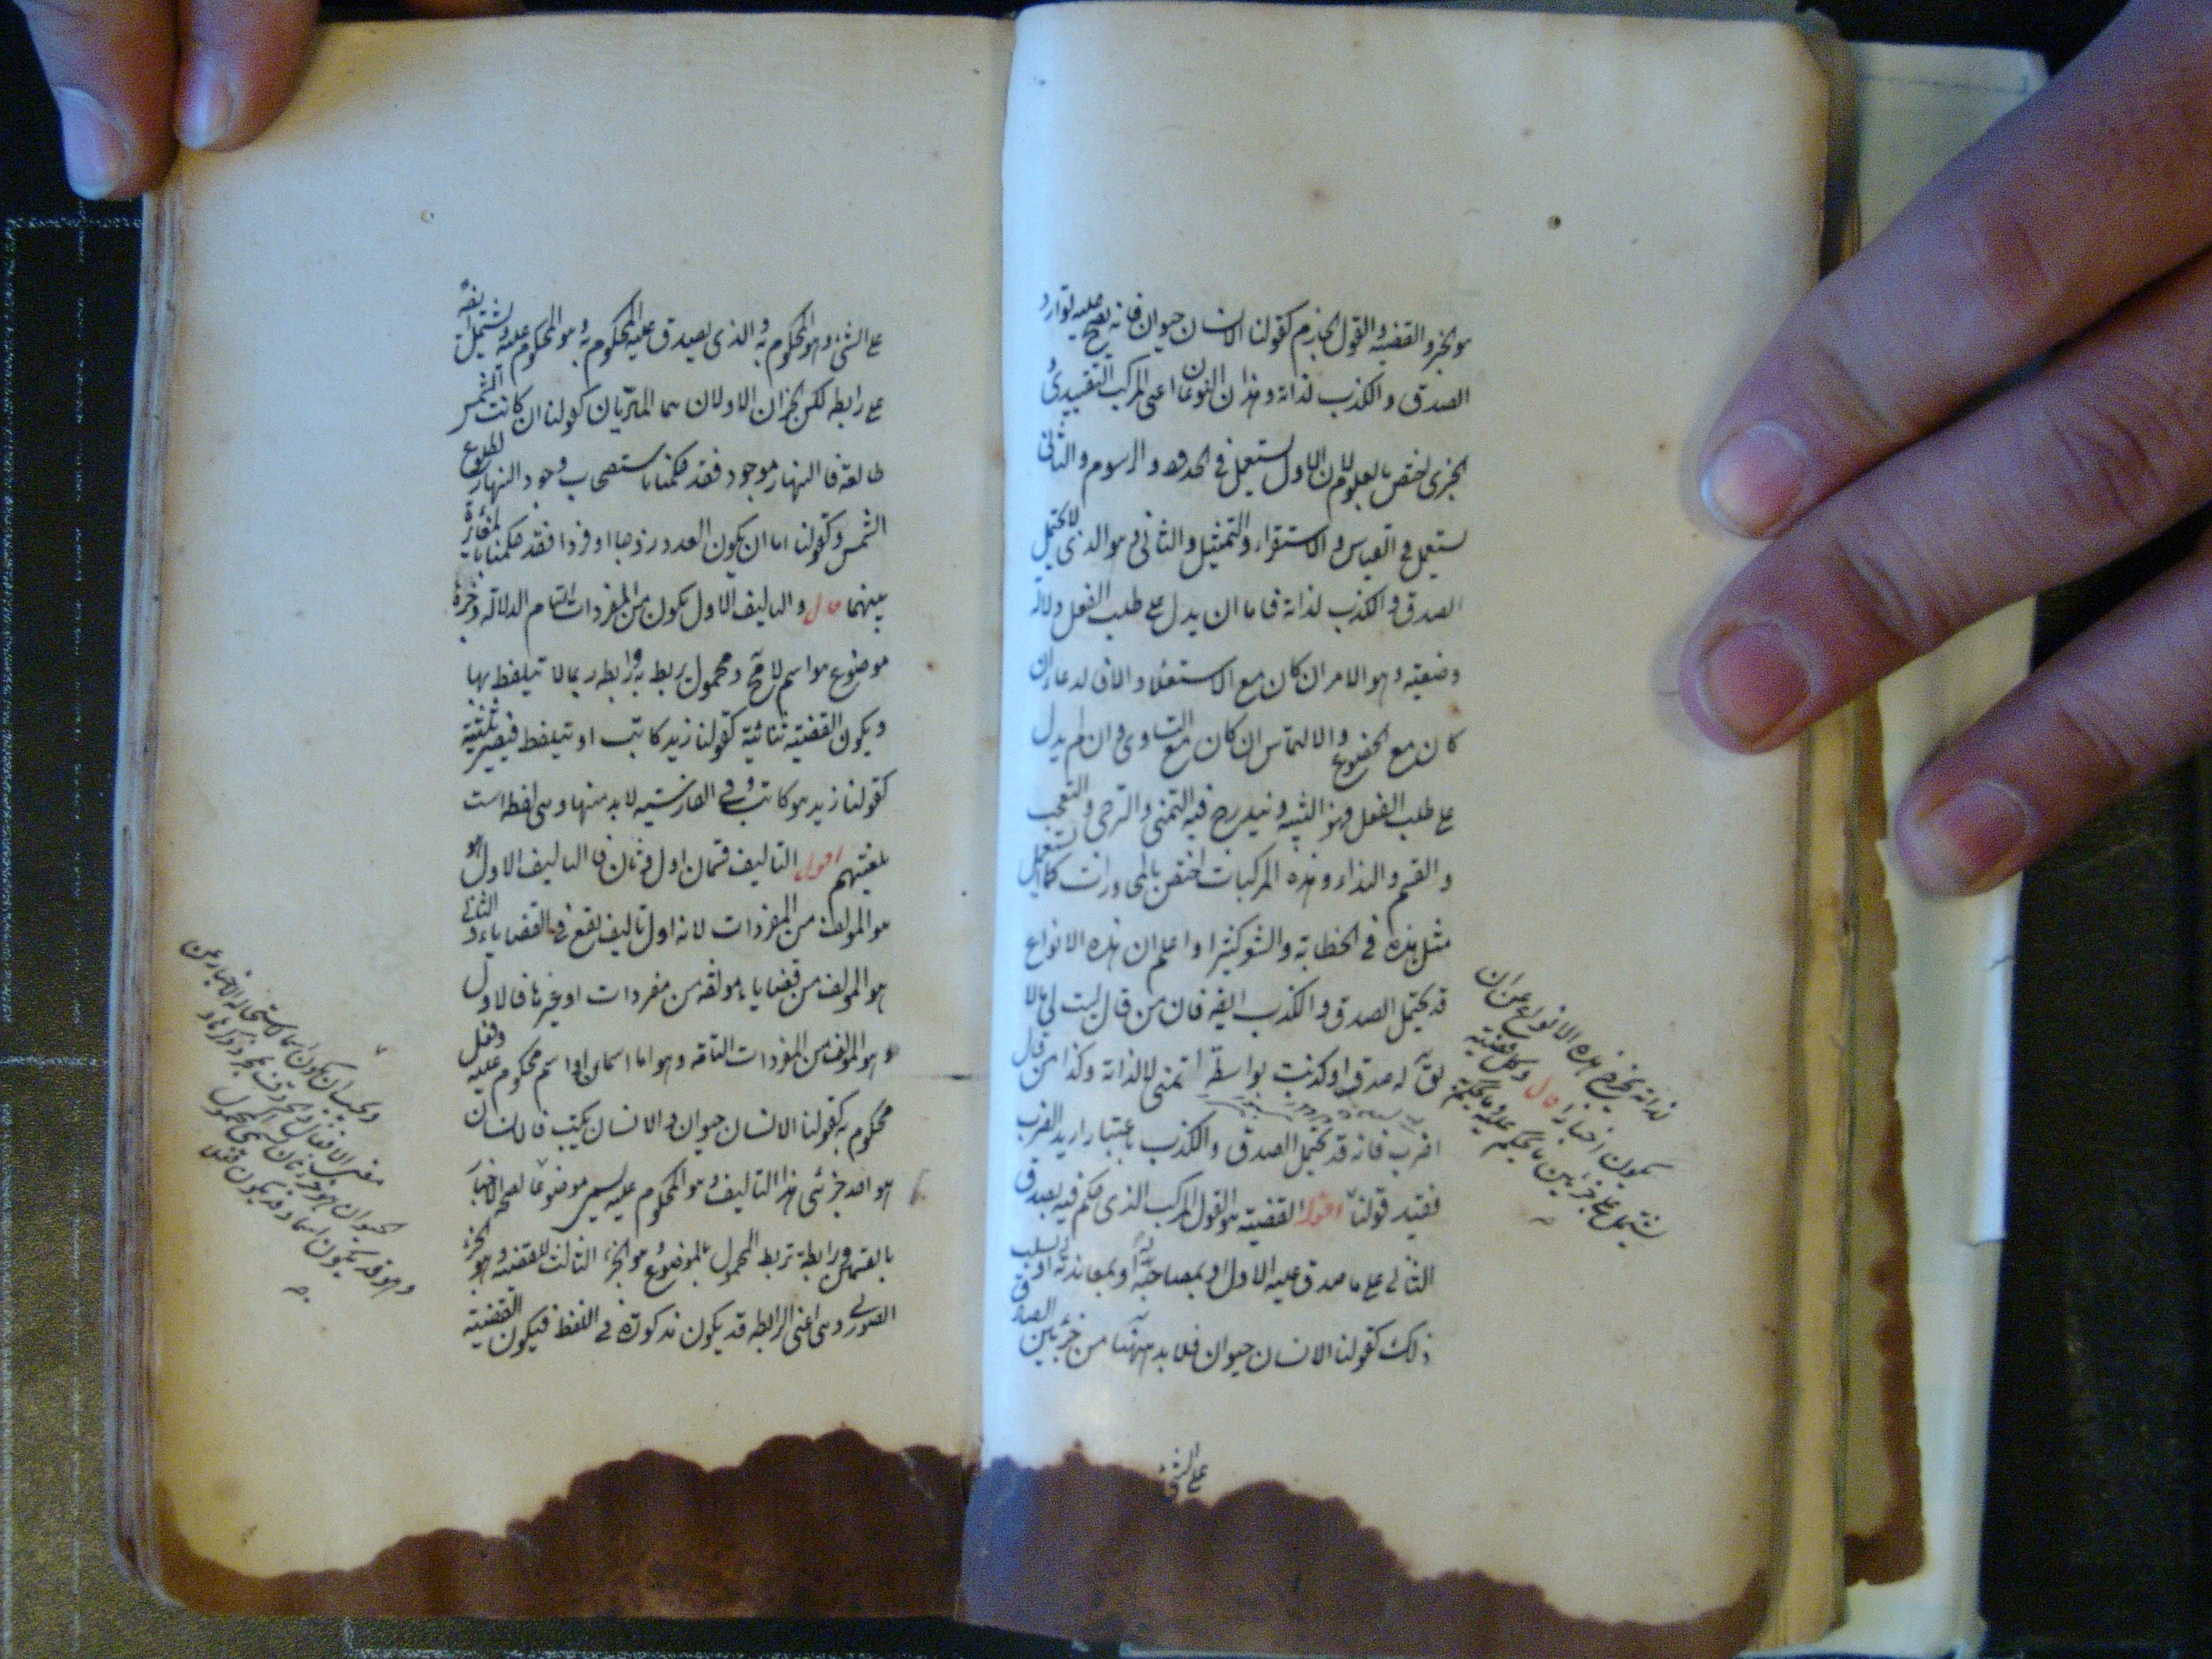 هو الخبر والقضية والقول الجازم كقولنا الانسان حيوان فانه يصح عليه توارد
الصدق والكذب لذاته وهذان النوعان اعنى المركب التقييدى و
الخبرى يختص بالعلوم لان الاول يستعمل فى الحدود والرسوم والثانى
يستعمل فى القياس والاستقراء والتمثيل والثانى وهو الذى لا يحتمل
الصدق والكذب لذاته فاما ان يدل على طلب الفعل دلالة
وضعية وهو الامر ان كان مع الاستعلاء والدعاء ان
كان مع الخضوع والالتماس ان كان مع التساوى وان لم يدل
على طلب الفعل وهو التنبيه ويندرج فيه التمنى والترجى والتعجب
والقسم والنداء وهذه المركبات يختص بالمحاورات يستعمل
مثل هذه فى الخطابة والشعر كثيرا واعلم ان هذه الانواع
قد يحتمل الصدق والكذب ايضه فان من قال ليت لى مالا
له صدق او كذبت بواسطة تمنى لا لذاته وكذا من قال
اضرب فانه قد يحتمل الصدق والكذب باعتبار اريد الضرب
فقيد قولنا القضية هو القول المركب الذى حكم فيه بصدق
الثانى على ما صدق عليه الاول او بمصاحبته او بمعاندته او بسلب
ذلك كقولنا الانسان حيوان فلا بد ههنا من جزئين
على الشئ
لذاته يخرج هذه الانواع عن ان
يكون اخبارا قال وكل قضية
يشتمل على جزئين ما يحكم عليه وما يحكم به
على الشئ وهو المحكوم به والذى يصدق عليه المحكوم به وهو المحكوم عليه ويشتمل ايضه
على رابطة لكن الجزان الاولان هما الماديان كقولنا ان كانت الشمس
طالعة فالنهار موجود فقد حكمنا باستصحاب وجود النهار لطلوع
الشمس وكقولنا اما ان يكون العدد زوجا او فردا فقد حكمنا بالمغايرة
بينهما قال والتاليف الاول يكون من المفردات التام الدلالة وجزءه
موضوع هو اسم لا مح ومحمول يربط به ورابطة ربما لا يتلفظ بها
ويكون القضية ثنائية كقولنا زيد كاتب او يتلفظ فيصير ثلثية
كقولنا زيد هو كاتب وفى الفارسية لا بد منها وهى لفظ است
بلغتهم اقول التاليف قسمان اول وثان فالتاليف الاول هو
هو المولف من المفردات لانه اول تاليف يقع فى القضايا والثانى
هو المولف من قضايا مولفة من مفردات او غيرها فالاول
هو المولف من المفردات التامة وهو اما اسمان او اسم محكوم عليه وفعل
محكوم به كقولنا الانسان حيوان والانسان يكتب فالانسان
هو احد جزئى هذا التاليف وهو المحكوم عليه يسمى موضوعا
ورابطة تربط المحمول بالموضوع هو الجزء الثالث للقضية وهو الجزء
الصورى وهى اعنى الرابطة قد يكون مذكورة فى اللفظ فيكون القضية
ويجب ان يكون اسما لاستحالة الاخبار عن
وهو قد يكون اسما وقد يكون فعلا